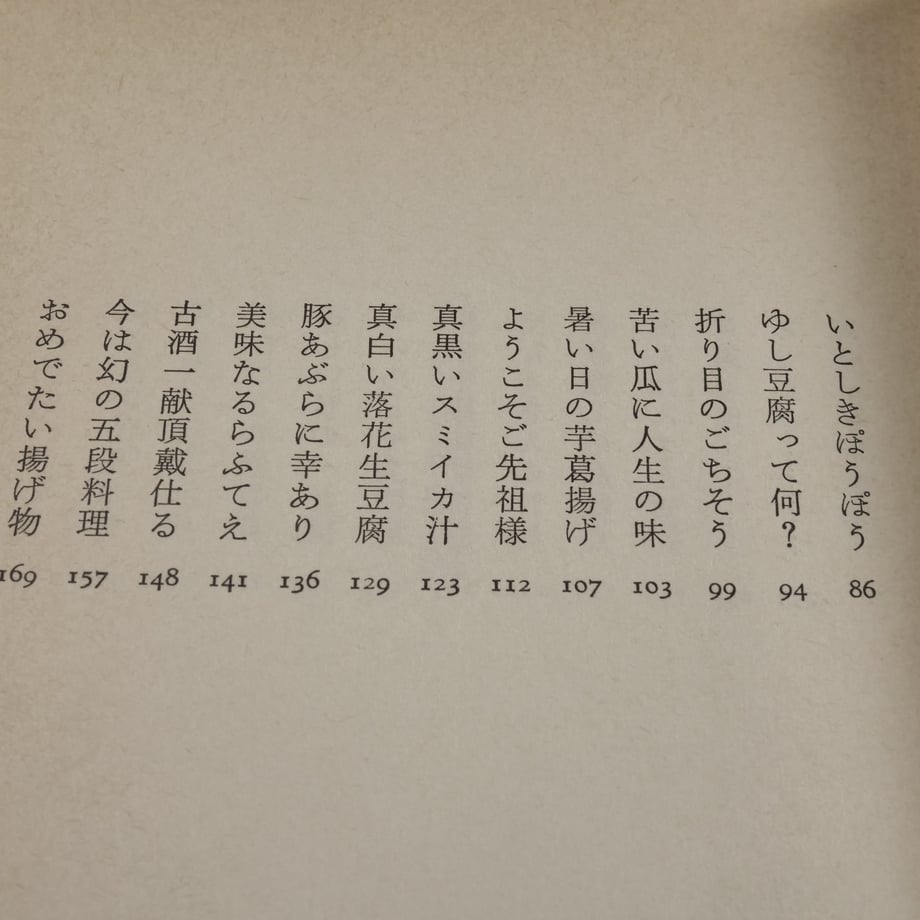 いとしきぽうぽう 86
ゆし豆腐って何? 94
折り目のごちそう 99
苦い瓜に人生の味 103
暑い日の芋葛揚げ 107
ようこそご先祖様 112
真黒いスミイカ汁 123
真白い落花生豆腐 129
豚あぶらに幸あり 136
美味なるらふてえ 141
古酒一献頂戴仕る 148
今は幻の五段料理 157
おめでたい揚げ物 169